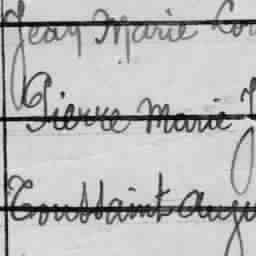 Jean Marie
Pierre Marie
Toussaint